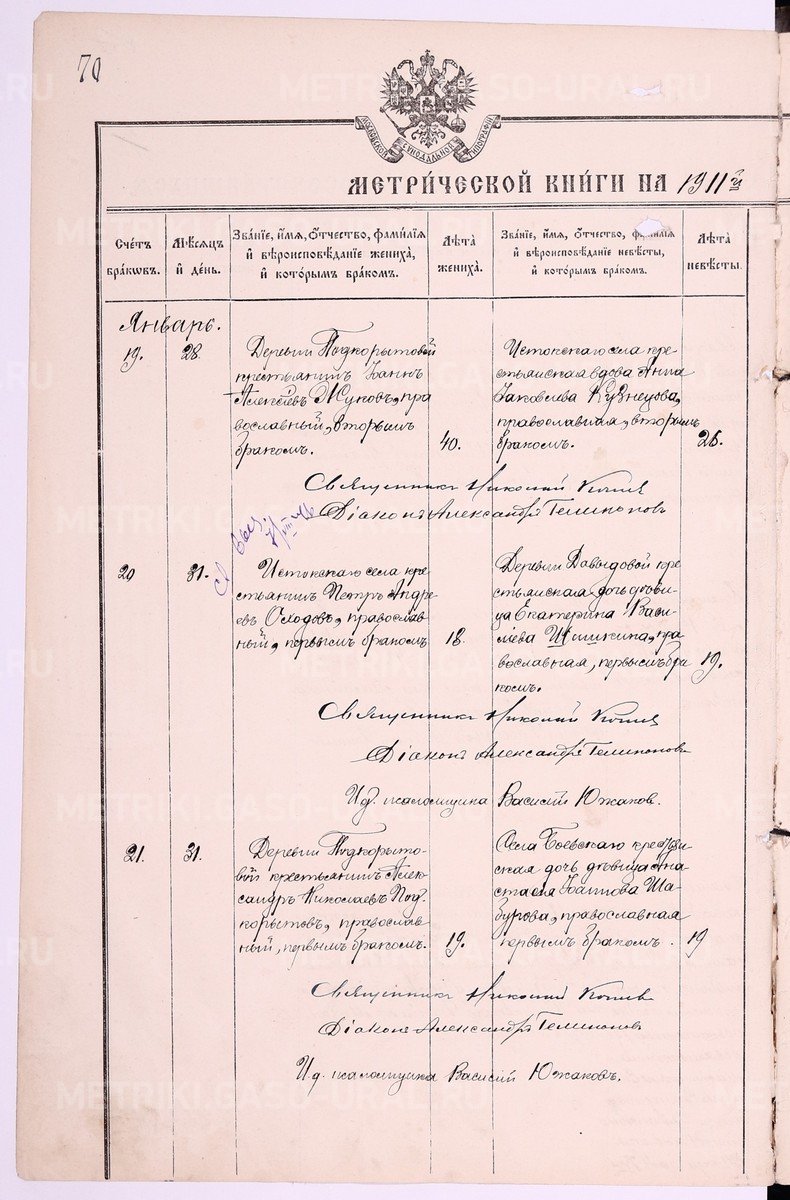 70
МОСКОВСКОЙ СѴНОДАЛЬНОЙ ТИПОГРАФІИ
МЕТРИ́ЧЕСКОЙ КНИ́ГИ НА 1911й
Сче́тъ бра́кѡвъ.
Мѣ́сѧцъ й де́нь.
Зва́нїе, и́мѧ, ѻ́тчество, фами́лїѧ
й вѣроисповѣ́данїе жениха̀,
й кото́рымъ бра́комъ.
Лѣ́та жениха̀.
Зва́нїе, и́мѧ, ѻ́тчество, фами́лїѧ
й вѣроисповѣ́данїе невѣ́сты,
й кото́рымъ бра́комъ.
Лѣ́та невѣ́сты.
Январь.
19. 28.
Деревни Подкорытовой
крестьянинъ Іоаннъ
Алексѣевъ Жуковъ, пра
вославный, вторымъ
бракомъ.
40.
Истокскаго села кре-
стьянская вдова Анна
Іаковлева Кузнецова,
православная, вторымъ
бракомъ.
26.
Священникъ Николай
Діаконъ Александръ
20 31.
Истокскаго села кре
стьянинъ Петръ Андре
евъ Оходовъ, православ
ный, первымъ бракомъ
18.
Деревни Давыдовой кре
стьянская дочь дѣви
ца Екатерина Васи
льева Шишкина, пра
вославная, первымъ бра
комъ.
19.
Священникъ Николай
Діаконъ Александръ
И.д. псаломщика Василій Южаков.
21. 31.
Деревни Подкорыто-
вой крестьянинъ Алек
сандръ Николаевъ Под
корытовъ, православ
ный, первымъ бракомъ.
19.
Села Боевскаго крестьян
ская дочь дѣвица Ана
стасія Іоаннова Ша-
бурова, православная
первымъ бракомъ.
19
Священникъ Николай
Діаконъ Александръ
И.д. псаломщика Василій Южаковъ.
METRIKI.GASO-URAL.RU